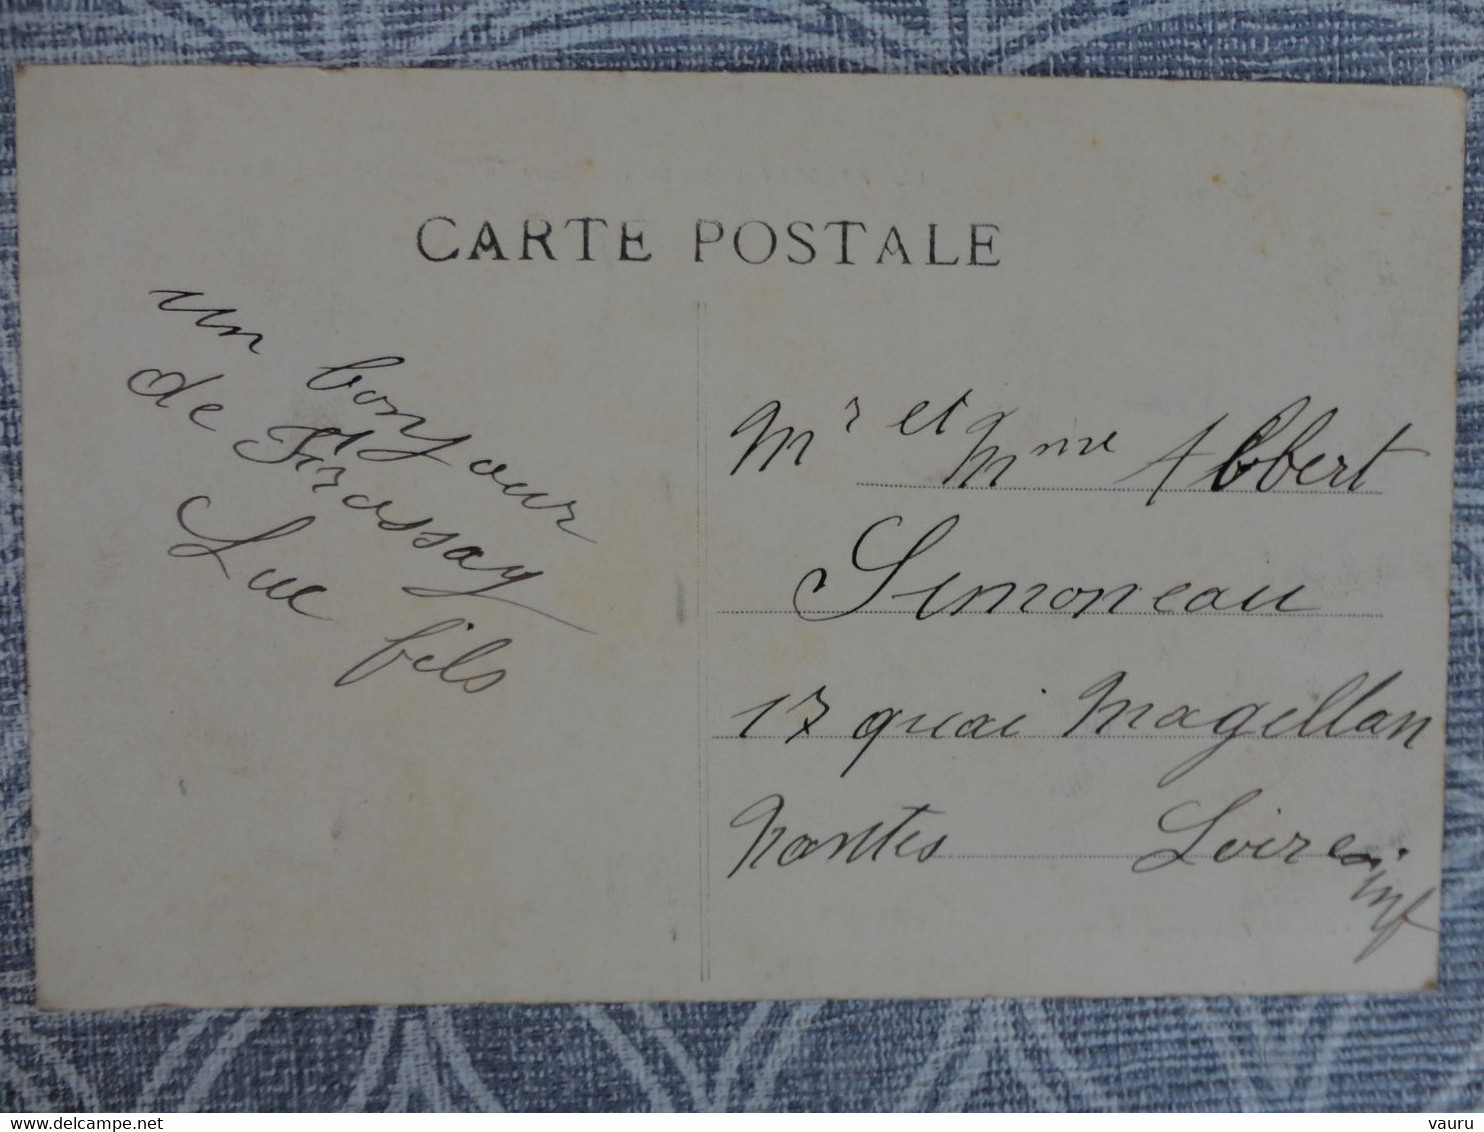 CARTE POSTALE
un bonjour
de Frossay
Luc fils
Mr et Mme Albert
Simoneau
17 quai Magellan
Nantes Loire inf
delcampe.net
vauru